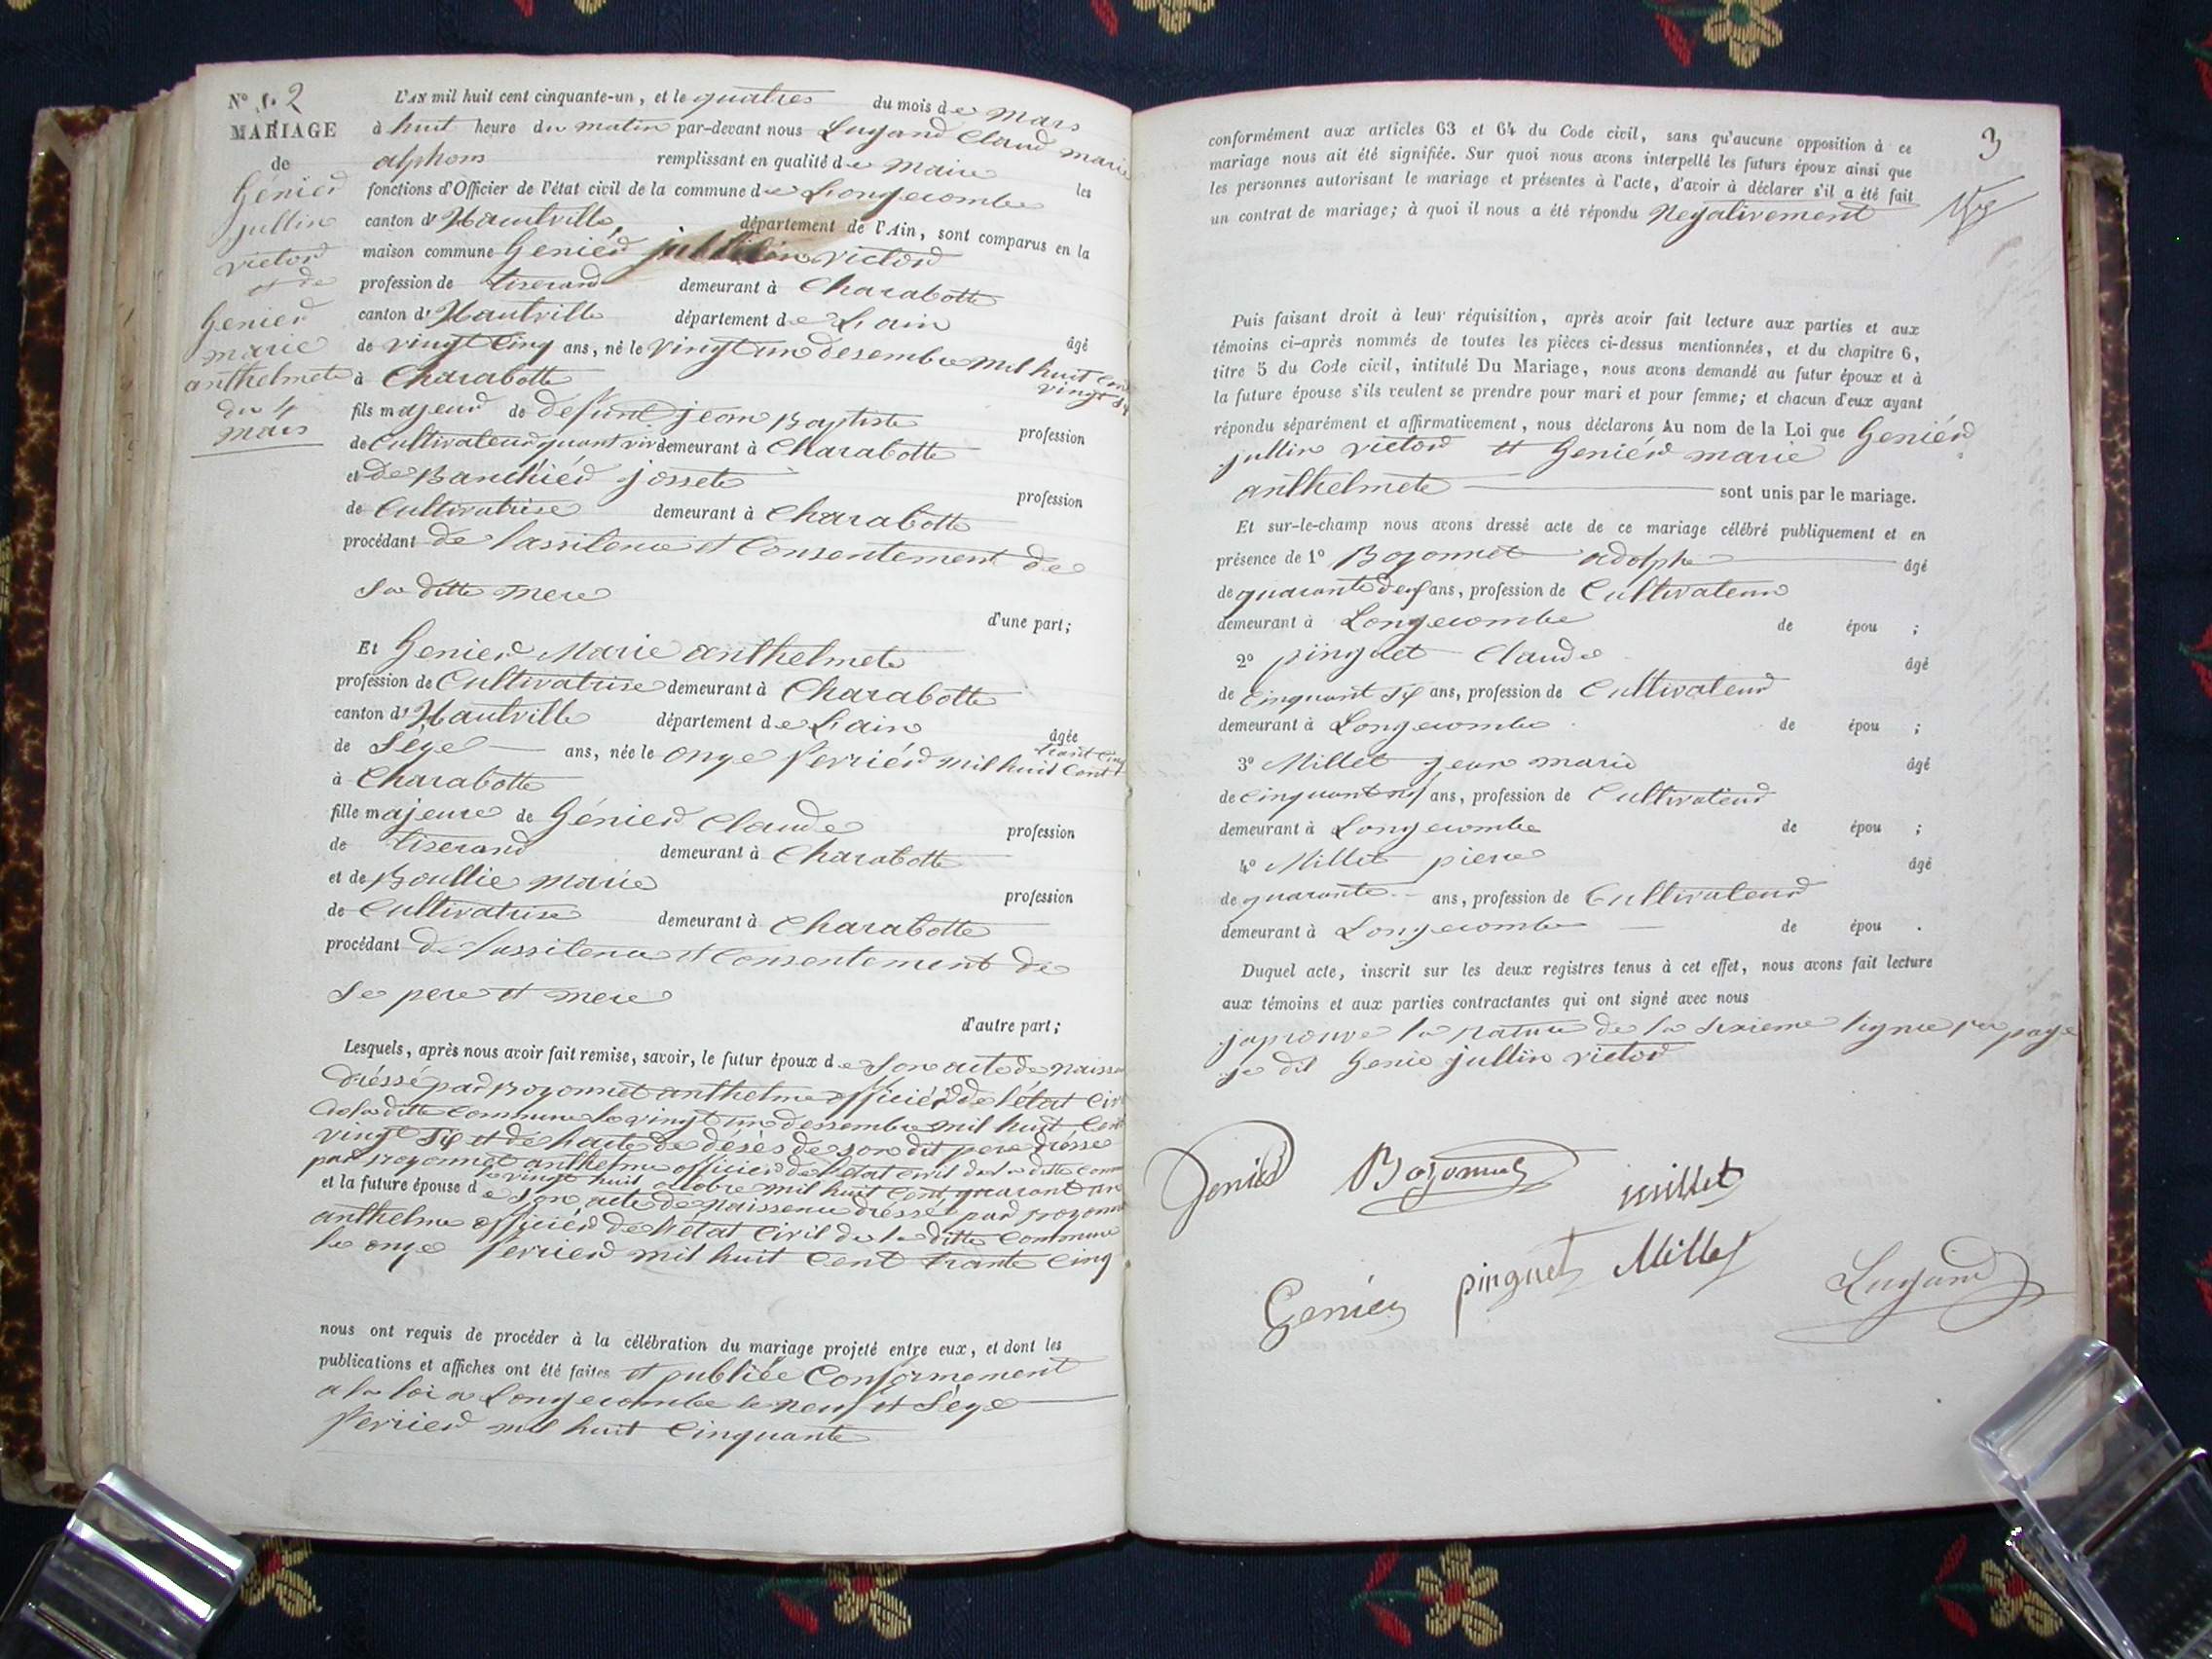 N° 2
MARIAGE
de
Genier
jullin
victor
et de
Genier
marie
anthelmete
du 4
mars
L'AN mil huit cent cinquante-un, et le quatres du mois de Mars
à huit heure du matin par-devant nous Lugand Claud marie
alphons remplissant en qualité de Maire les
fonctions d'Officier de l'état civil de la commune de Longecombe
canton d' Hautville, département de l'Ain, sont comparus en la
maison commune Geniér jullin victor
profession de tiserand demeurant à Charabotte
canton d' Hautville département de L'ain âgé
de vingt Cinq ans, né le vingt un desembre mil huit cent
vingt six
à Charabotte
fils majeur de defunt jean Baptiste profession
de Cultivateur quant viv demeurant à Charabotte
et De Banchiér jossete profession
de Cultivatrise demeurant à Charabotte
procédant de lassitence et Consentement de
sa ditte mere
d'une part;
Et Genier Marie anthelmete
profession de Cultivatrise demeurant à Charabotte
canton d' Hautville département de L'ain âgée
de Sèze ans, née le onze ferriér mil huit Cent trant Cinq
à Charabotte
fille majeure de Génier Claude profession
de tiserand demeurant à Charabotte
et de Boullie marie profession
de Cultivatrise demeurant à Charabotte
procédant de lassitence et Consentement de
se pere et mere
d'autre part;
Lesquels, après nous avoir fait remise, savoir, le futur époux de son acte de naisse
dréssé par Bozonnet anthelme officiér de l'état Civ
de la ditte Commune le vingt un dessembre mil huit Cent
vingt six et de hacte de désès de son dit pere drésse
par Bozonnet anthelme officier de l'etat Civil de la ditte Comm
le vingt huit octobre mil huit Cent quarant un
et la future épouse de son acte de naissence dréssé par Bozonn
anthelme officiér de l'etat Civil de la ditte Commune
le onze ferrier mil huit Cent trante Cinq
nous ont requis de procéder à la célébration du mariage projeté entre eux, et dont les
publications et affiches ont été faites et publiée Conformement
a la loi a Longecombe le neuf et Sèze
ferrier mil huit Cinquante
3
conformément aux articles 63 et 64 du Code civil, sans qu'aucune opposition à ce
mariage nous ait été signifiée. Sur quoi nous avons interpellé les futurs époux ainsi que
les personnes autorisant le mariage et présentes à l'acte, d'avoir à déclarer s'il a été fait
un contrat de mariage; à quoi il nous a été répondu Negativement
Puis faisant droit à leur réquisition, après avoir fait lecture aux parties et aux
témoins ci-après nommés de toutes les pièces ci-dessus mentionnées, et du chapitre 6,
titre 5 du Code civil, intitulé Du Mariage, nous avons demandé au futur époux et à
la future épouse s'ils veulent se prendre pour mari et pour femme; et chacun d'eux ayant
répondu séparément et affirmativement, nous déclarons Au nom de la Loi que Geniér
jullin victor et Geniér marie
anthelmete sont unis par le mariage.
Et sur-le-champ nous avons dressé acte de ce mariage célébré publiquement et en
présence de 1° Bozonnet adolphe âgé
de quarante deux ans, profession de Cultivateur
demeurant à Longecombe de épou ;
2° pinguet Claude âgé
de Cinquant six ans, profession de Cultivateur
demeurant à Longecombe de épou ;
3° Millet jean marie âgé
de Cinquant ans, profession de Cultivateur
demeurant à Longecombe de épou ;
4° Millet pierre âgé
de quarante ans, profession de Cultivateur
demeurant à Longecombe de épou .
Duquel acte, inscrit sur les deux registres tenus à cet effet, nous avons fait lecture
aux témoins et aux parties contractantes qui ont signé avec nous
japrouve la rature de la sixieme ligne page
je dit Genie jullin victor
Geniér Bozonnet Millet
Geniér pinguet Millet Lugand